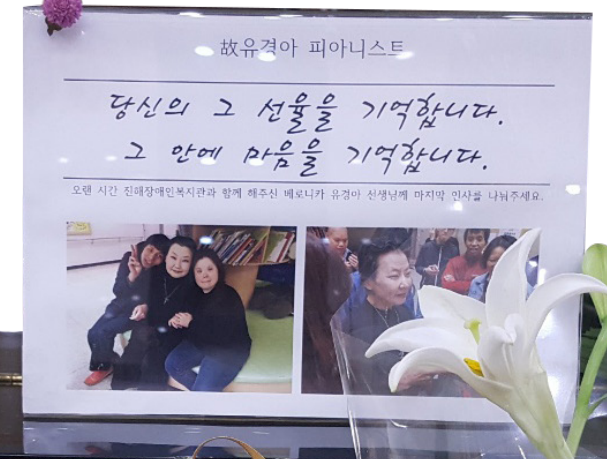 故유경아 피아니스트
당신의 그 선율을 기억합니다.
그 안에 마음을 기억합니다.
오랜 시간 진해장애인복지관과 함께 해주신 베로니카 유경아 선생님께 마지막 인사를 나눠주세요.